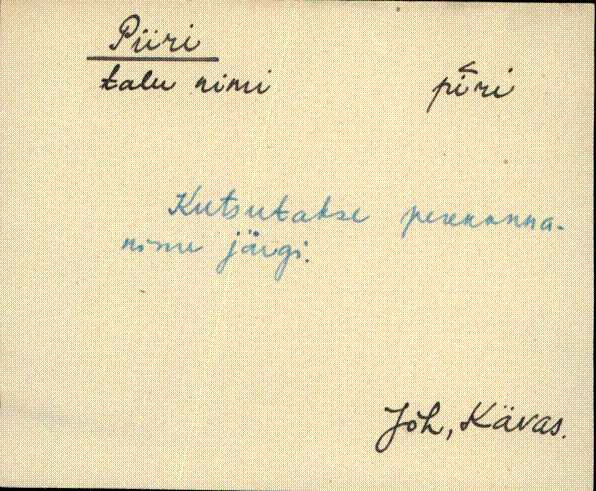 Piiri
talu nimi pī̆ri
Kutsutakse perekonna-
nime järgi.
Jõh, Kävas.